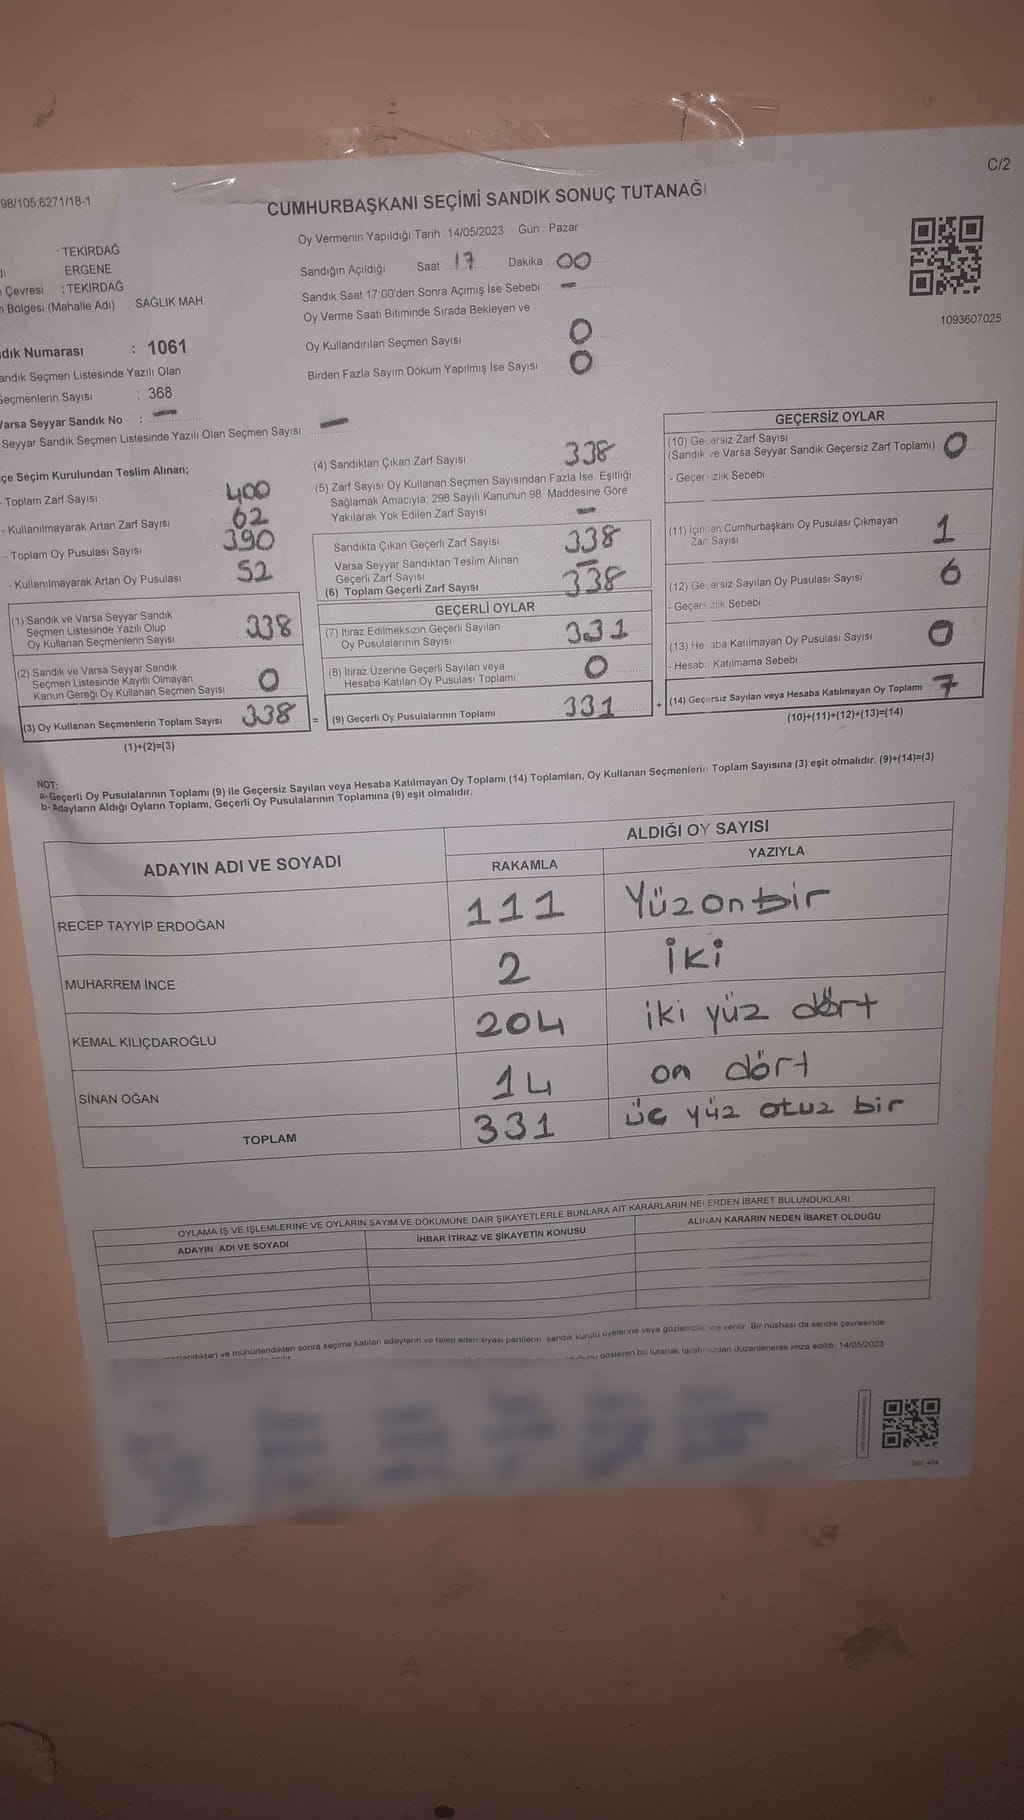 98/105,6271/18-1
C/2
CUMHURBAŞKANI SEÇİMİ SANDIK SONUÇ TUTANAĞI
Oy Vermenin Yapıldığı Tarih : 14/05/2023 Gün : Pazar
: TEKİRDAĞ
ERGENE
Çevresi : TEKİRDAĞ
Bölgesi (Mahalle Adı) : SAĞLIK MAH.
Sandığın Açıldığı Saat 17 Dakika : 00
Sandık Saat 17:00'den Sonra Açımış İse Sebebi : -
Oy Verme Saati Bitiminde Sırada Bekleyen ve
Oy Kullandırılan Seçmen Sayısı : 0
Birden Fazla Sayım Döküm Yapılmış İse Sayısı : 0
1093607025
dık Numarası : 1061
andık Seçmen Listesinde Yazılı Olan
Seçmenlerin Sayısı : 368
Varsa Seyyar Sandık No : -
Seyyar Sandık Seçmen Listesinde Yazılı Olan Seçmen Sayısı: -
çe Seçim Kurulundan Teslim Alınan;
- Toplam Zarf Sayısı 400
- Kullanılmayarak Artan Zarf Sayısı 62
- Toplam Oy Pusulası Sayısı 390
- Kullanılmayarak Artan Oy Pusulası 52
(1) Sandık ve Varsa Seyyar Sandık
Seçmen Listesinde Yazılı Olup
Oy Kullanan Seçmenlerin Sayısı 338
(2) Sandık ve Varsa Seyyar Sandık
Seçmen Listesinde Kayıtlı Olmayan
Kanun Gereği Oy Kullanan Seçmen Sayısı 0
(3) Oy Kullanan Seçmenlerin Toplam Sayısı 338 =
(1)+(2)=(3)
(4) Sandıktan Çıkan Zarf Sayısı 338
(5) Zarf Sayısı Oy Kullanan Seçmen Sayısından Fazla İse, Eşitliği
Sağlamak Amacıyla; 298 Sayılı Kanunun 98. Maddesine Göre
Yakılarak Yok Edilen Zarf Sayısı -
Sandıkta Çıkan Geçerli Zarf Sayısı 338
Varsa Seyyar Sandıktan Teslim Alınan
Geçerli Zarf Sayısı -
(6) Toplam Geçerli Zarf Sayısı 338
GEÇERLİ OYLAR
(7) İtiraz Edilmeksizin Geçerli Sayılan
Oy Pusulalarının Sayısı 331
(8) İtiraz Üzerine Geçerli Sayılan veya
Hesaba Katılan Oy Pusulası Toplamı 0
(9) Geçerli Oy Pusulalarının Toplamı 331 +
GEÇERSİZ OYLAR
(10) Geçersiz Zarf Sayısı
(Sandık ve Varsa Seyyar Sandık Geçersiz Zarf Toplamı) 0
- Geçersizlik Sebebi :
(11) İçinden Cumhurbaşkanı Oy Pusulası Çıkmayan
Zarf Sayısı 1
(12) Geçersiz Sayılan Oy Pusulası Sayısı 6
- Geçersizlik Sebebi :
(13) Hesaba Katılmayan Oy Pusulası Sayısı 0
- Hesaba Katılmama Sebebi :
(14) Geçersiz Sayılan veya Hesaba Katılmayan Oy Toplamı : 7
(10)+(11)+(12)+(13)=(14)
NOT:
a-Geçerli Oy Pusulalarının Toplamı (9) ile Geçersiz Sayılan veya Hesaba Katılmayan Oy Toplamı (14) Toplamları, Oy Kullanan Seçmenlerin Toplam Sayısına (3) eşit olmalıdır. (9)+(14)=(3)
b-Adayların Aldığı Oyların Toplamı, Geçerli Oy Pusulalarının Toplamına (9) eşit olmalıdır.
ADAYIN ADI VE SOYADI ALDIĞI OY SAYISI
RAKAMLA YAZIYLA
RECEP TAYYİP ERDOĞAN 111 Yüzonbir
MUHARREM İNCE 2 iki
KEMAL KILIÇDAROĞLU 204 iki yüz dört
SİNAN OĞAN 14 on dört
TOPLAM 331 üç yüz otuz bir
OYLAMA İŞ VE İŞLEMLERİNE VE OYLARIN SAYIM VE DÖKÜMÜNE DAİR ŞİKAYETLERLE BUNLARA AİT KARARLARIN NELERDEN İBARET BULUNDUKLARI
ADAYIN ADI VE SOYADI İHBAR İTİRAZ VE ŞİKAYETİN KONUSU ALINAN KARARIN NEDEN İBARET OLDUĞU
ve mühürlendikten sonra seçime katılan adayların ve talep eden siyasi partilerin sandık kurulu üyelerine veya gözlemcilerine verilir. Bir nüshası da sandık çevresinde
gösteren bu tutanak tarafımızdan düzenlenerek imza edildi. 14/05/2023